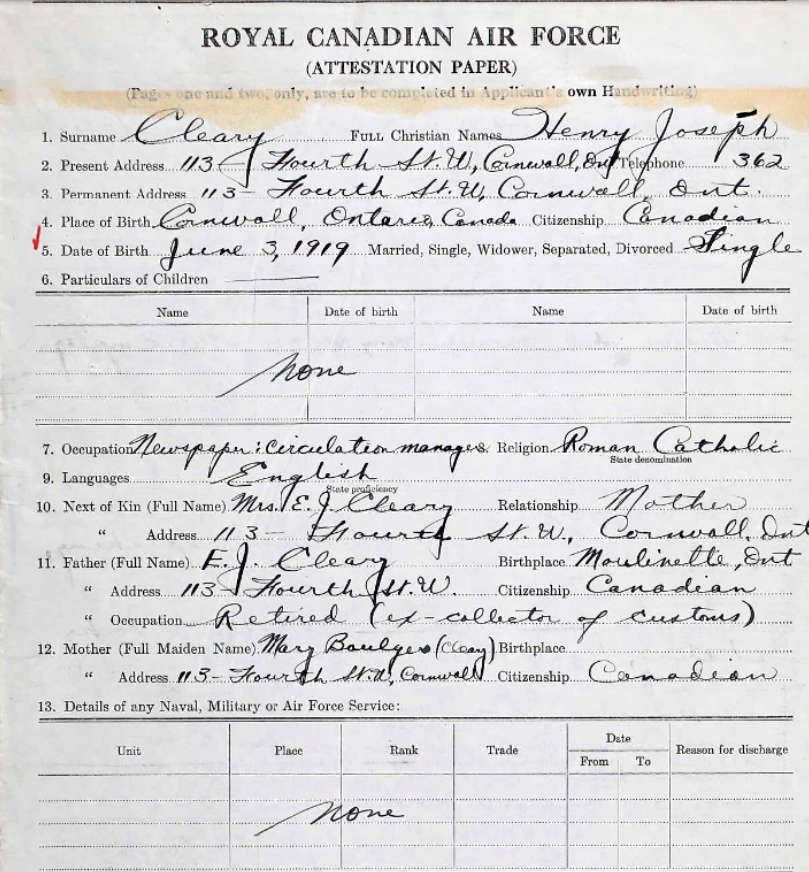 ROYAL CANADIAN AIR FORCE
(ATTESTATION PAPER)
(Pages one and two, only, are to be completed in Applicant's own Handwriting)
1. Surname Cleary FULL Christian Names Henry Joseph
2. Present Address 113- Fourth St. W, Cornwall, Ont Telephone 362
3. Permanent Address 113- Fourth St. W, Cornwall, Ont.
4. Place of Birth Cornwall, Ontario, Canada Citizenship Canadian
5. Date of Birth June 3, 1919 Married, Single, Widower, Separated, Divorced Single
6. Particulars of Children
Name Date of birth Name Date of birth
None
7. Occupation Newspaper: circulation manager 8. Religion Roman Catholic
State denomination
9. Languages English
State proficiency
10. Next of Kin (Full Name) Mrs. E. J. Cleary Relationship Mother
" Address 113- Fourth St. W, Cornwall, Ont
11. Father (Full Name) E. J. Cleary Birthplace Moulinette, Ont
" Address 113- Fourth St. W. Citizenship Canadian
" Occupation Retired (ex-collector of customs)
12. Mother (Full Maiden Name) Mary (Cleary) Birthplace
" Address 113- Fourth St. W, Cornwall Citizenship Canadian
13. Details of any Naval, Military or Air Force Service:
Unit Place Rank Trade Date Reason for discharge
From To
None